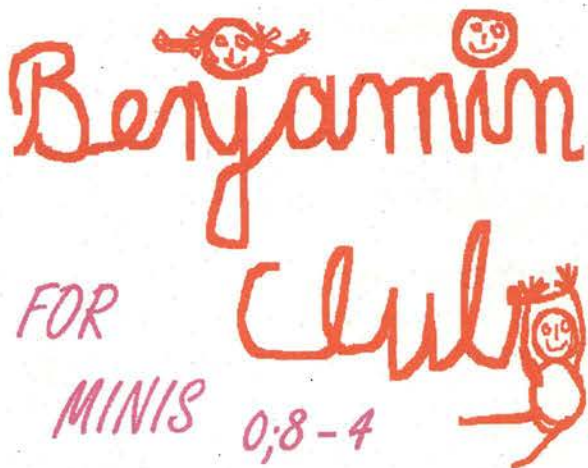 Benjamin
Club
FOR
MINIS 0;8-4